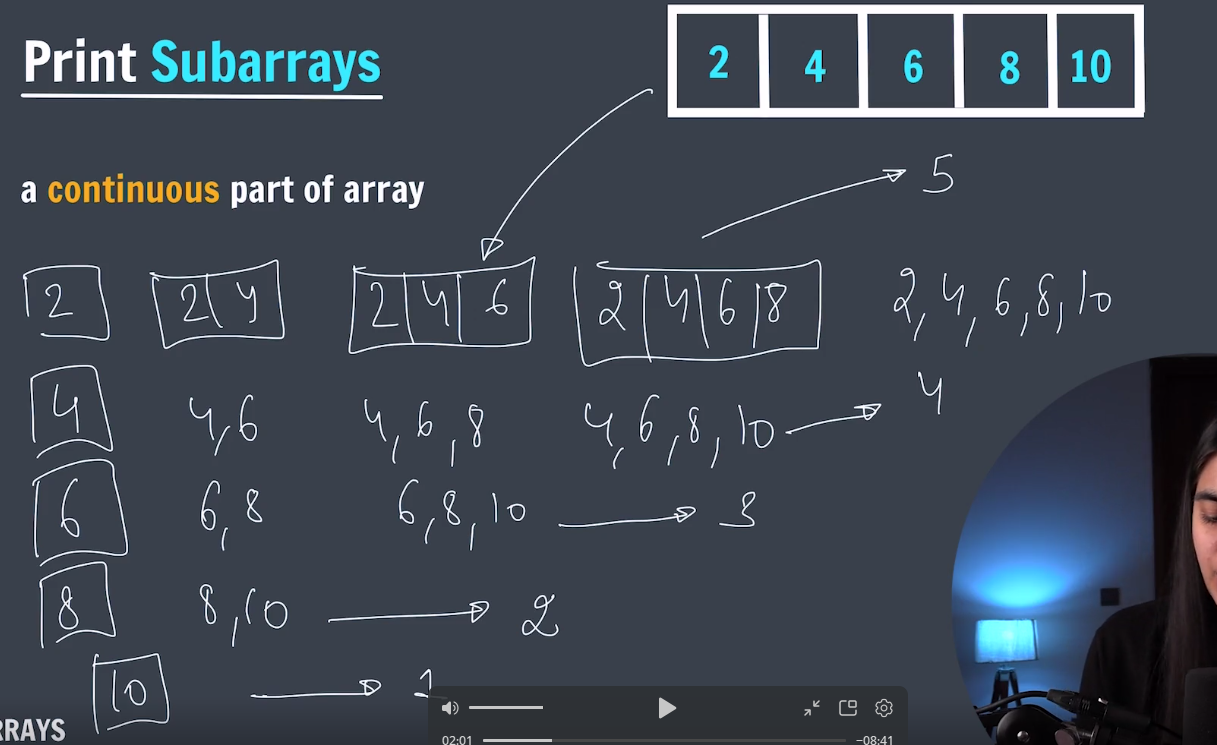 Print Subarrays
2 4 6 8 10
a continuous part of array
5
2 2 4 2 4 6 2 4 6 8 2, 4, 6, 8, 10
4 4,6 4,6,8 4,6,8,10 4
6 6,8 6,8,10 3
8 8,10 2
10 1
RRAYS
02:01 −08:41